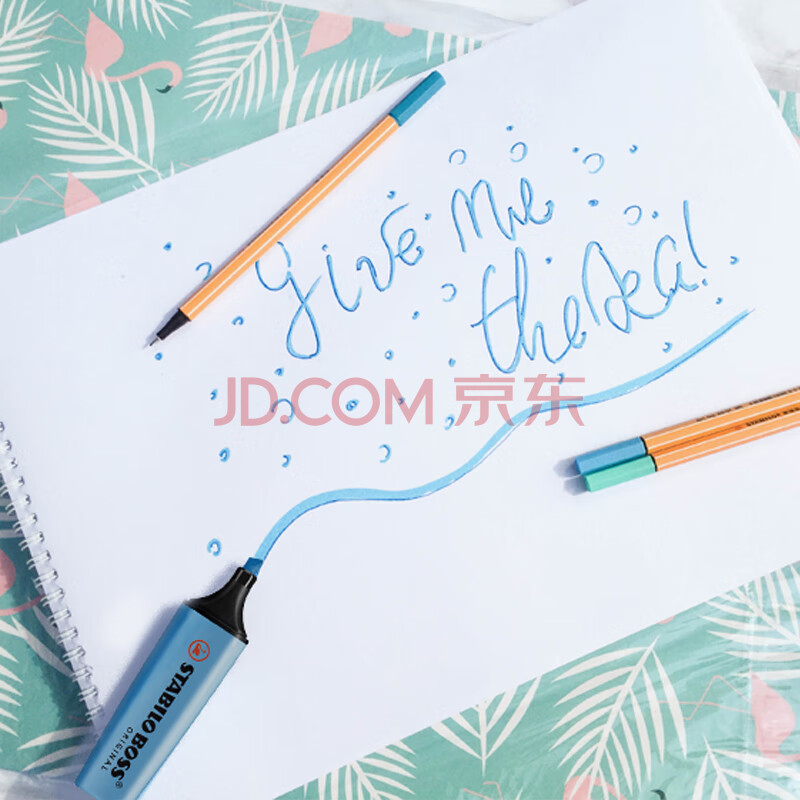 give me
the sea!
JD.COM 京东
STABILO BOSS®
ORIGINAL